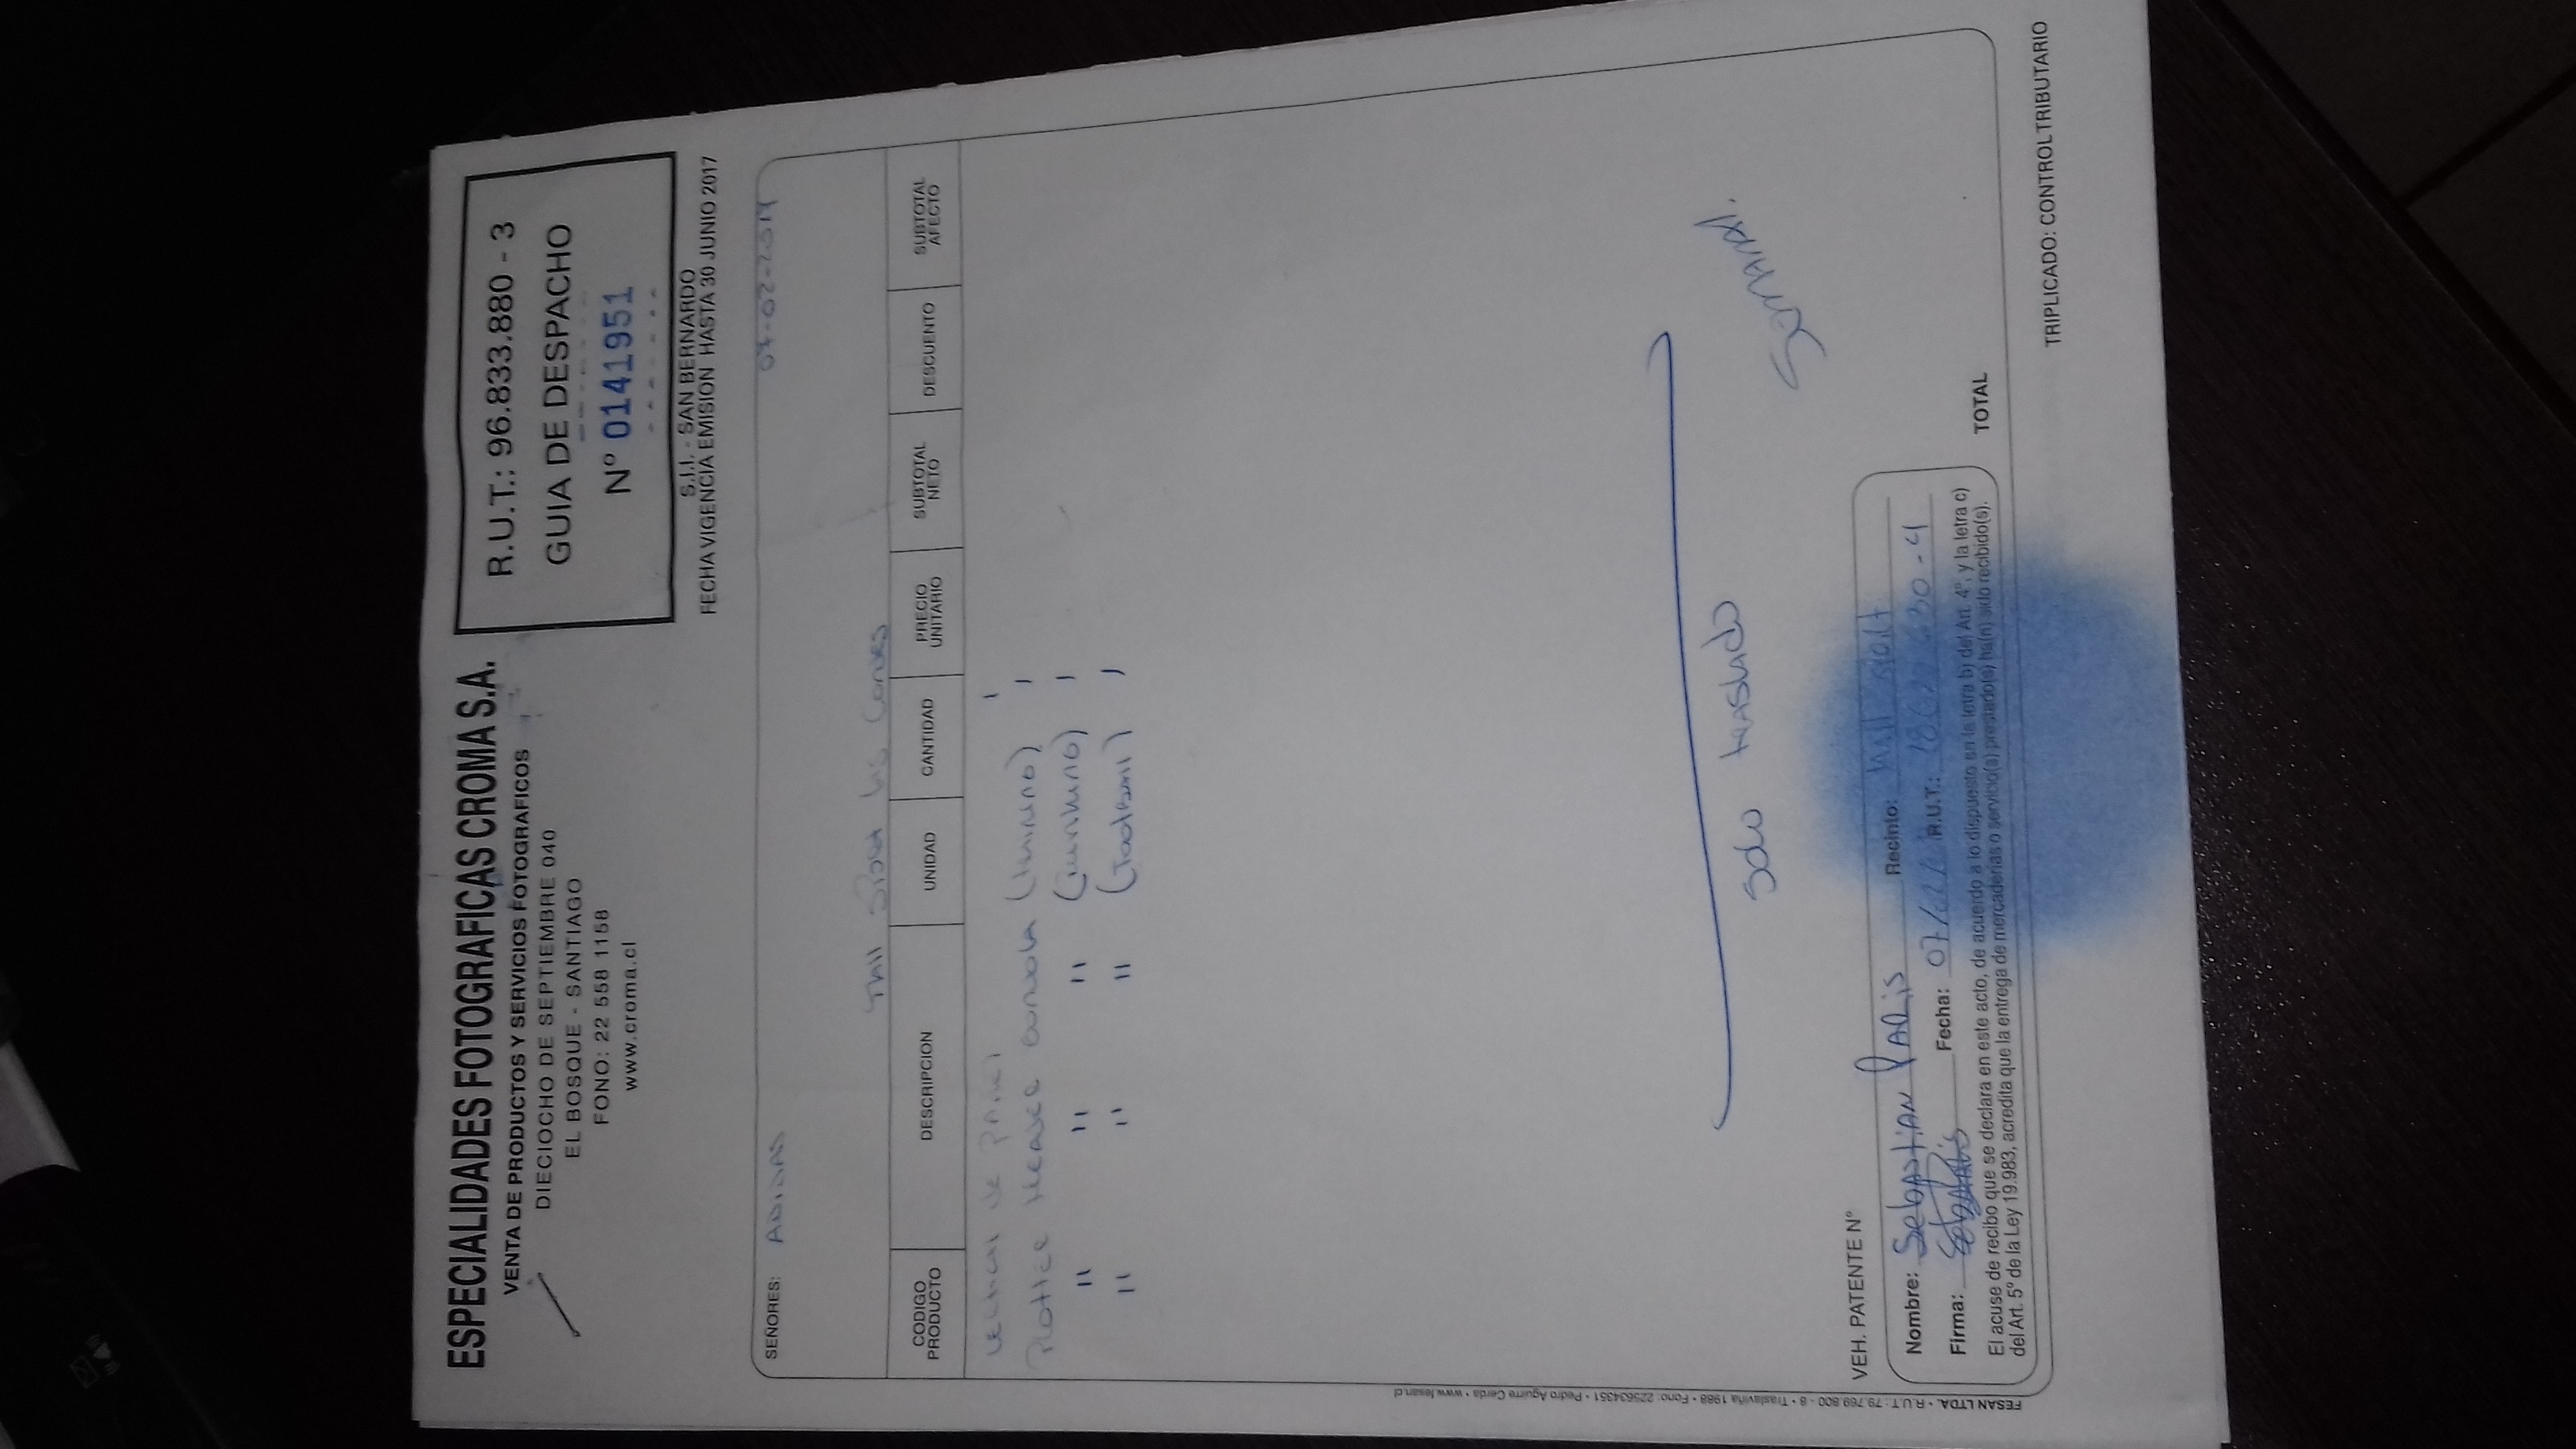 ESPECIALIDADES FOTOGRAFICAS CROMA S.A.
VENTA DE PRODUCTOS Y SERVICIOS FOTOGRAFICOS
DIECIOCHO DE SEPTIEMBRE 040
EL BOSQUE - SANTIAGO
FONO: 22 558 1158
www.croma.cl
R.U.T.: 96.833.880 - 3
GUIA DE DESPACHO
Nº 0141951
S.I.I. - SAN BERNARDO
FECHA VIGENCIA EMISION HASTA 30 JUNIO 2017
SEÑORES: ADIDAS 07-02-2017
Mall Sport Las Condes
CODIGO PRODUCTO DESCRIPCION UNIDAD CANTIDAD PRECIO UNITARIO SUBTOTAL NETO DESCUENTO SUBTOTAL AFECTO
DE 1
1
" " " 1
" " " (Football) 1
Solo traslado
Semanal.
VEH. PATENTE Nº
Nombre: Sebastian Paris Recinto: Mall Sport
Firma: Fecha: 07/02/ R.U.T.: 630-4
El acuse de recibo que se declara en este acto, de acuerdo a lo dispuesto en la letra b) del Art. 4º, y la letra c)
del Art. 5º de la Ley 19.983, acredita que la entrega de mercaderías o servicio(s) prestado(s) ha(n) sido recibido(s).
TOTAL
TRIPLICADO: CONTROL TRIBUTARIO
FESAN LTDA. • R.U.T.: 79.769.800 - 8 • Traslaviña 1988 • Fono: 225634351 • Pedro Aguirre Cerda • www.fesan.cl